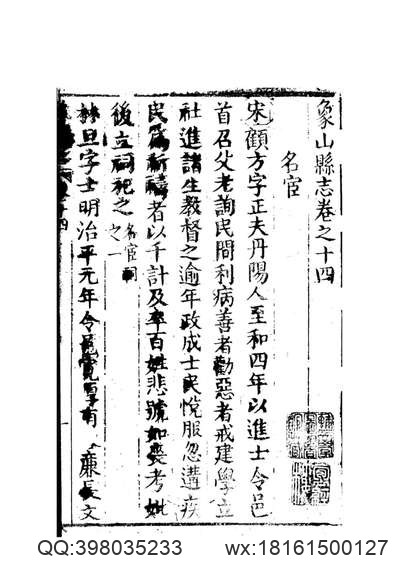 象山縣志卷之十四
名宦
宋顧方字正夫丹陽人至和四年以進士令邑
首召父老詢民間利病善者勸惡者戒建學立
社進諸生教督之逾年政成士民悅服忽遘疾
民為祈禱者以千計及卒百姓悲號如喪考妣
後立祠祀之名宦祠之一
林旦字士明治平元年令邑寬厚有 廉長文
QQ:398035233 wx:18161500127